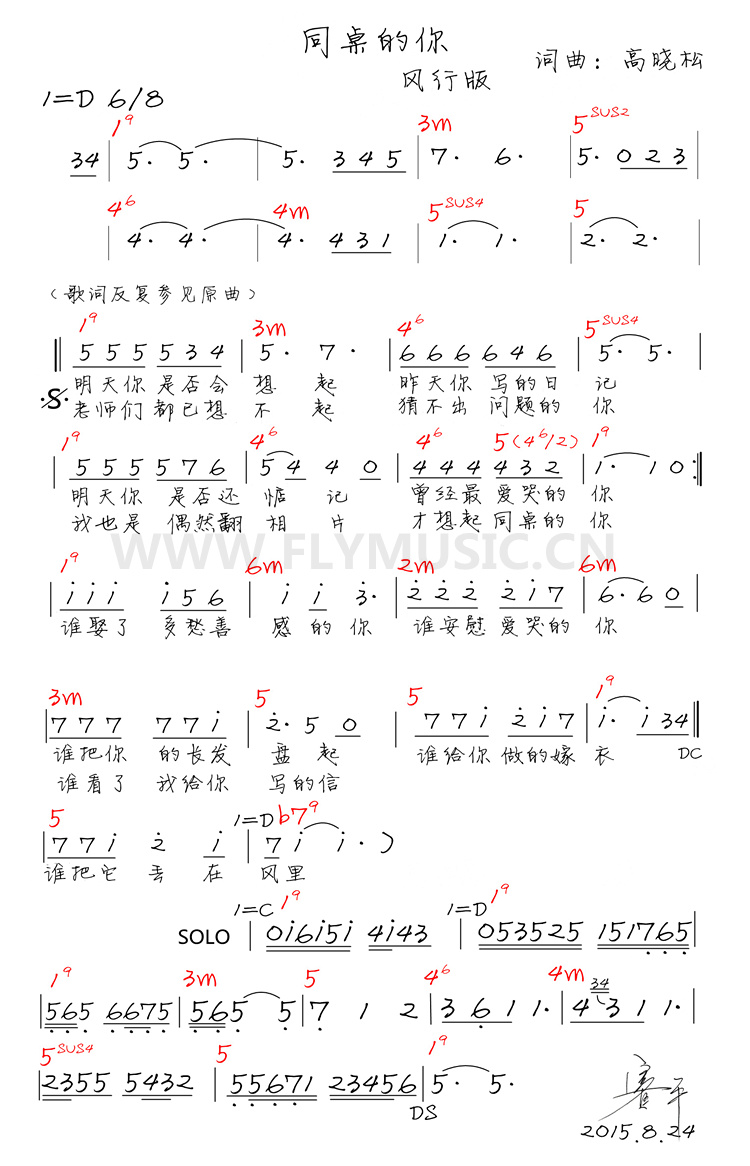 同桌的你
风行版
词曲：高晓松
1=D 6/8
1⁹ 3m 5ˢᵁˢ²
34 | 5· 5· | 5· 345 | 7· 6· | 5· 023
4⁶ 4m 5ˢᵁˢ⁴ 5
4· 4· | 4· 431 | 1· 1· | 2· 2· |
（歌词反复参见原曲）
1⁹ 3m 4⁶ 5ˢᵁˢ⁴
‖ 555 534 | 5· 7· | 666 646 | 5· 5· |
明天你 是否会 想 起 昨天你 写的日 记
老师们 都已想 不 起 猜不出 问题的 你
1⁹ 4⁶ 4⁶ 5(4⁶/2) 1⁹
| 555 576 | 54 4 0 | 444 432 | 1· 10 :‖
明天你 是否还 惦 记 曾经最 爱哭的 你
我也是 偶然翻 相 片 才想起 同桌的 你
WWW.FLYMUSIC.CN
1⁹ 6m 2m 6m
| i i i i56 | i i 3· | 222 2i7 | 6· 60 |
谁娶了 多愁善 感的你 谁安慰 爱哭的 你
3m 5 5 1⁹
| 777 77i | 2· 5 0 | 77i 2i7 | i· i 34 ‖
谁把你 的长发 盘起 谁给你 做的嫁 衣 DC
谁看了 我给你 写的信
5 1=D b7⁹
| 77i 2 i | 7 i i· )
谁把它 丢 在 风里
1=C 1⁹ 1=D 1⁹
SOLO | 0i6i5i 4i43 | 053525 151765 |
1⁹ 3m 5 4⁶ 4m
| 565 6675 | 565 5 | 7 1 2 | 3 6 1 1· | 34 4 3 1 1· |
5ˢᵁˢ⁴ 5 1⁹
| 2355 5432 | 55671 23456 | 5· 5·
DS
2015.8.24